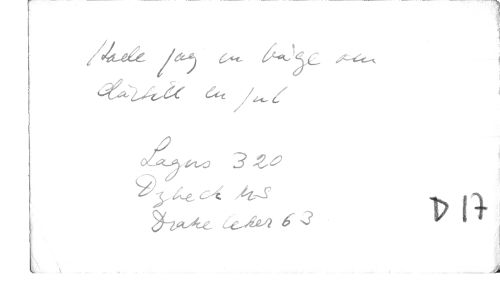 Hade jag en båge om
därtill en jul
Lagus 320
Dybeck
Drake leker 63
D 17